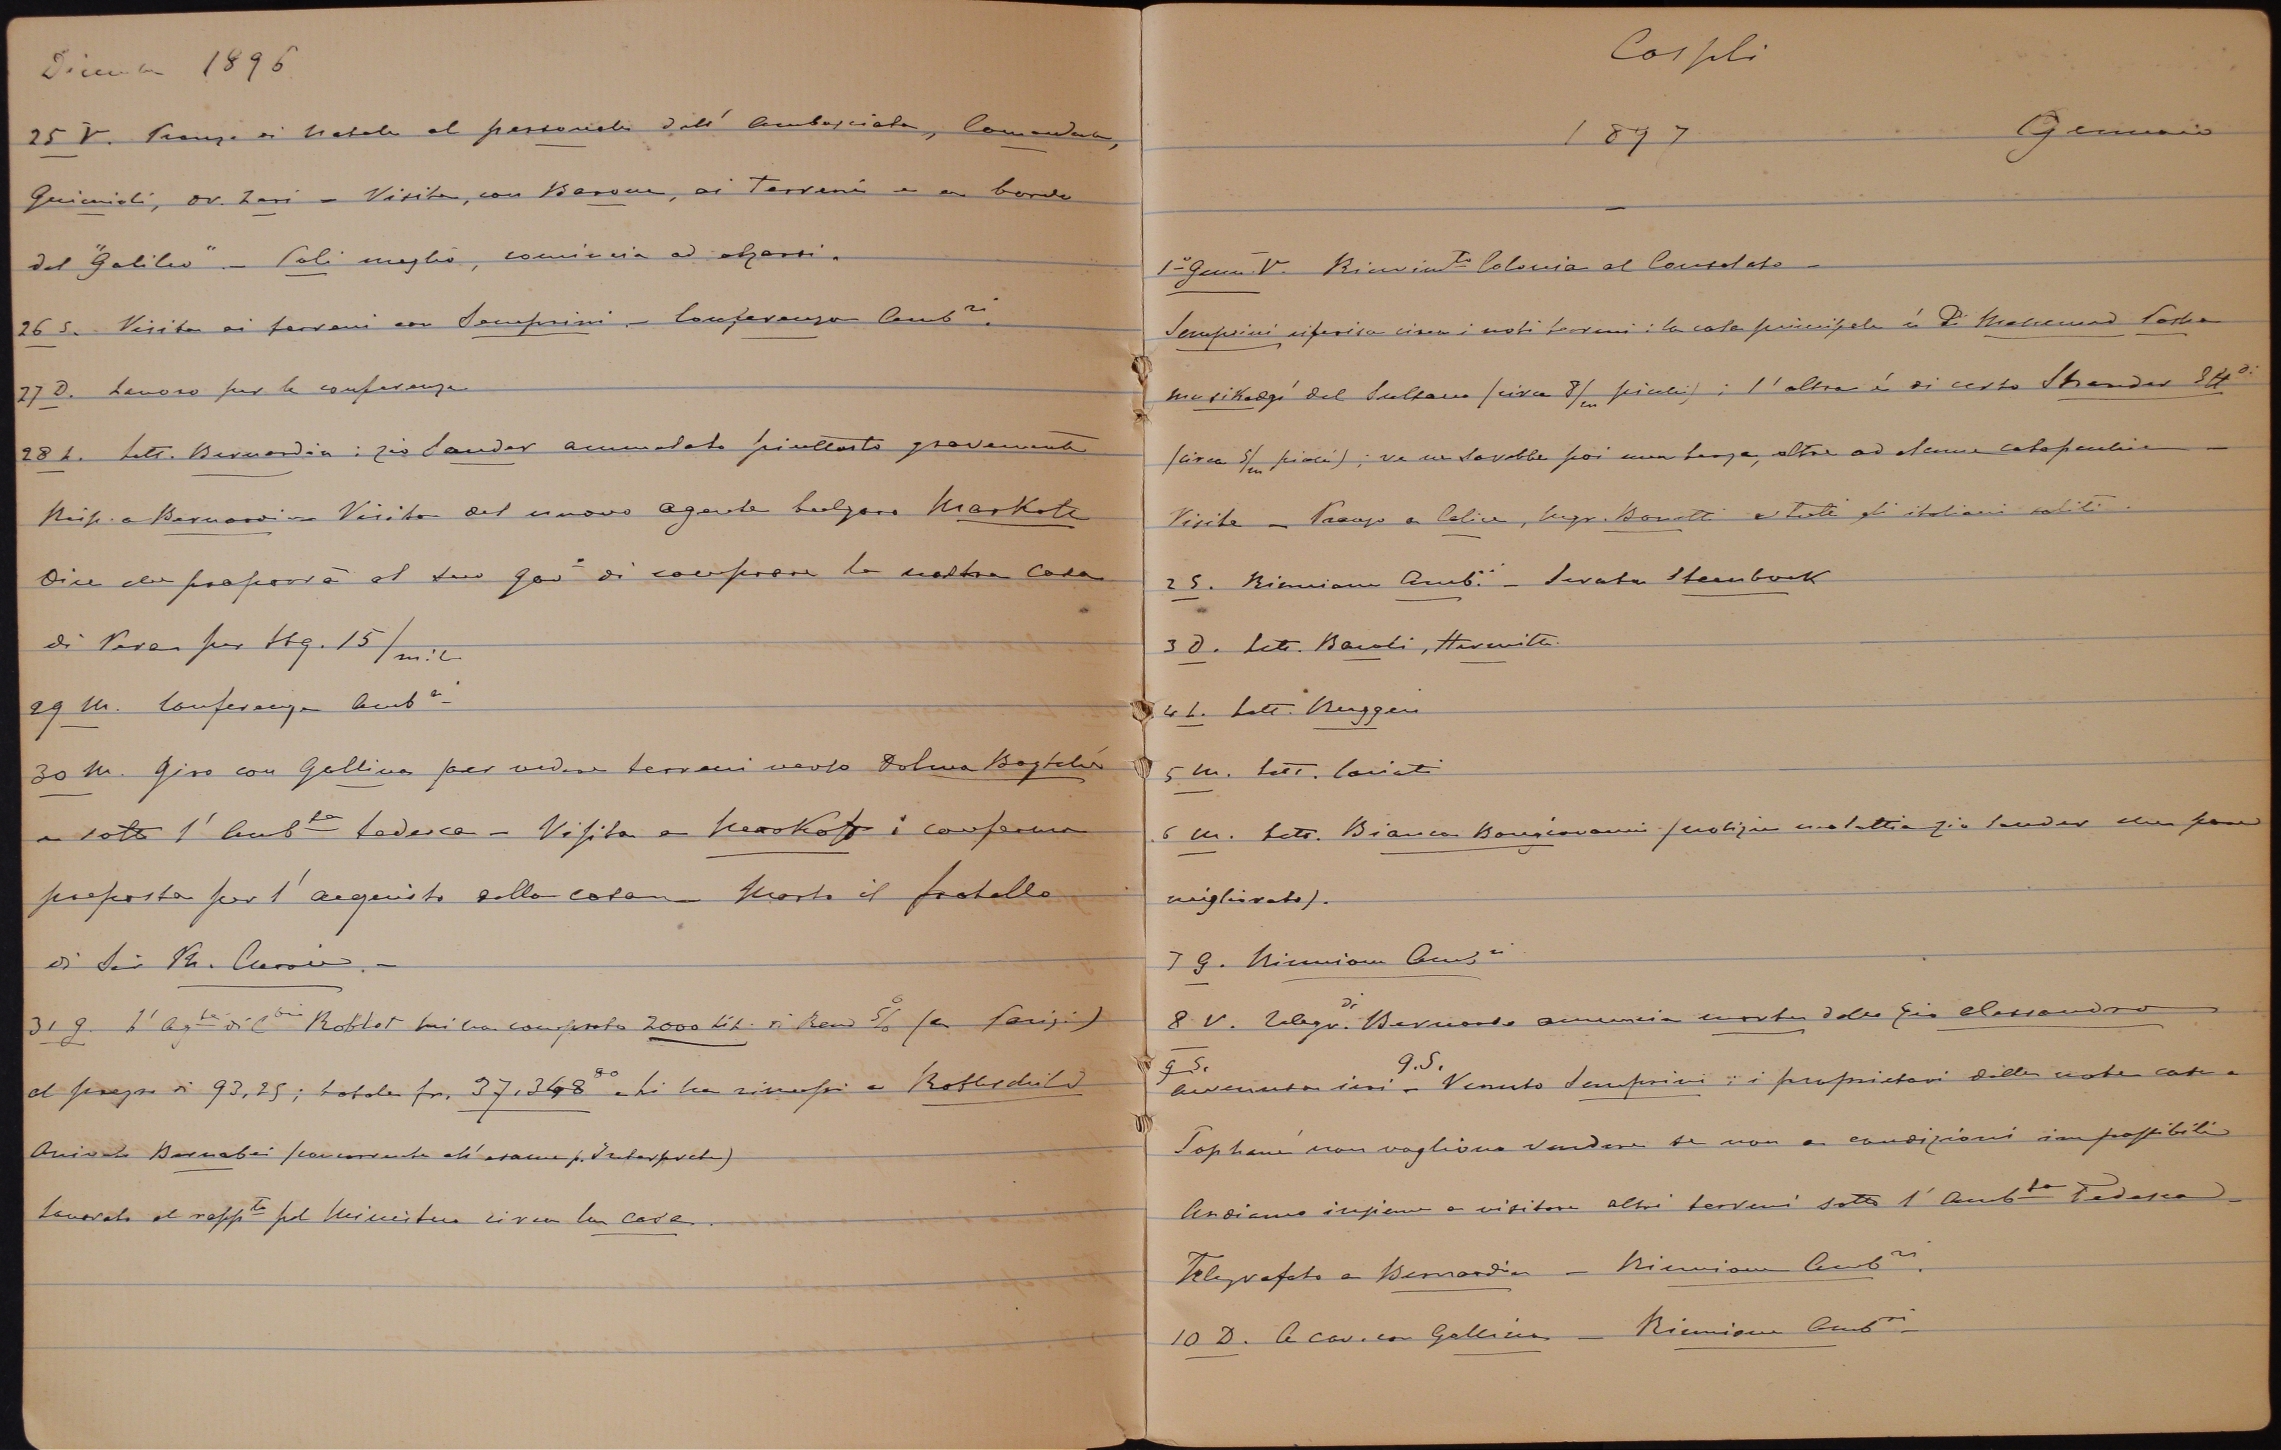 Dicembre 1896
25 V. Pranzo di Natale al personale dell'Ambasciata, Comandante,
Guicciardi, av. Zari – Visita, con Barone, ai terreni e a bordo
del "Galileo" – Poli meglio, comincia ad alzarsi.
26 S. Visita ai terreni con Semprini – Conferenza Amb.ri
27 D. Lavoro per la conferenza
28 L. Lett. Bernardin : zio Sander ammalato piuttosto gravemente
Risp. a Bernardin – Visita del nuovo agente bulgaro Markoff
Dice che proporrà al suo Gov.o di comprare la nostra casa
di Pera per Ltq. 15/mila
29 M. Conferenza Amb.ri
30 M. Giro con Gallina per vedere terreni verso Dolma Bagtché
e sotto l'Amb.ta tedesca – Visita a Markoff : conferma
proposta per l'acquisto della casa – Morto il fratello
di Sir Ph. Currie. –
31 G. L'Ag.te di C.bio Roblot mi ha comprato 2000 Lit. di Rend 5% (a Parigi)
al prezzo di 93,25; totale fr. 37,368 90 che ha rimessi a Rothschild
Arrivato Barnabei (concorrente all'esame p. Interprete)
Lavorato al rapp.to pel Ministero circa la casa.
Cospli
1897 Gennaio
–
1° Genn. V. Ricevim.to Colonia al Consolato –
Semprini riferisce circa i noti terreni : la casa principale è di Mahemud Pasha
musikadgi del Sultano (circa 8/m pichi) ; l'altra è di certo Skander Eff.di
(circa 5/m pichi) ; ve ne sarebbe poi una terza, oltre ad alcune catapecchie –
Visite – Pranzo a Calice, Mgr. Bonetti e tutti gli italiani soliti.
2 S. Riunione Amb.ri – Serata Steenbock
3 D. Lett. Baroli, Hermite
4 L. Lett. Ruggeri
5 M. Lett. Cariati
6 M. Lett. Bianca Bongiovanni (notizie malattia zio Sander che pare
migliorato).
7 G. Riunione Amb.ri
8 V. Telegr. di Bernardo annuncia morte dello zio Alessandro
9 S. avvenuta ieri – 9.S. Venuto Semprini : i proprietari delle note case a
Tophané non vogliono vendere se non a condizioni impossibili
Andiamo insieme a visitare altri terreni sotto l'Amb.ta Tedesca –
Telegrafato a Bernardin – Riunione Amb.ri
10 D. A cav. con Gallina – Riunione Amb.ri –